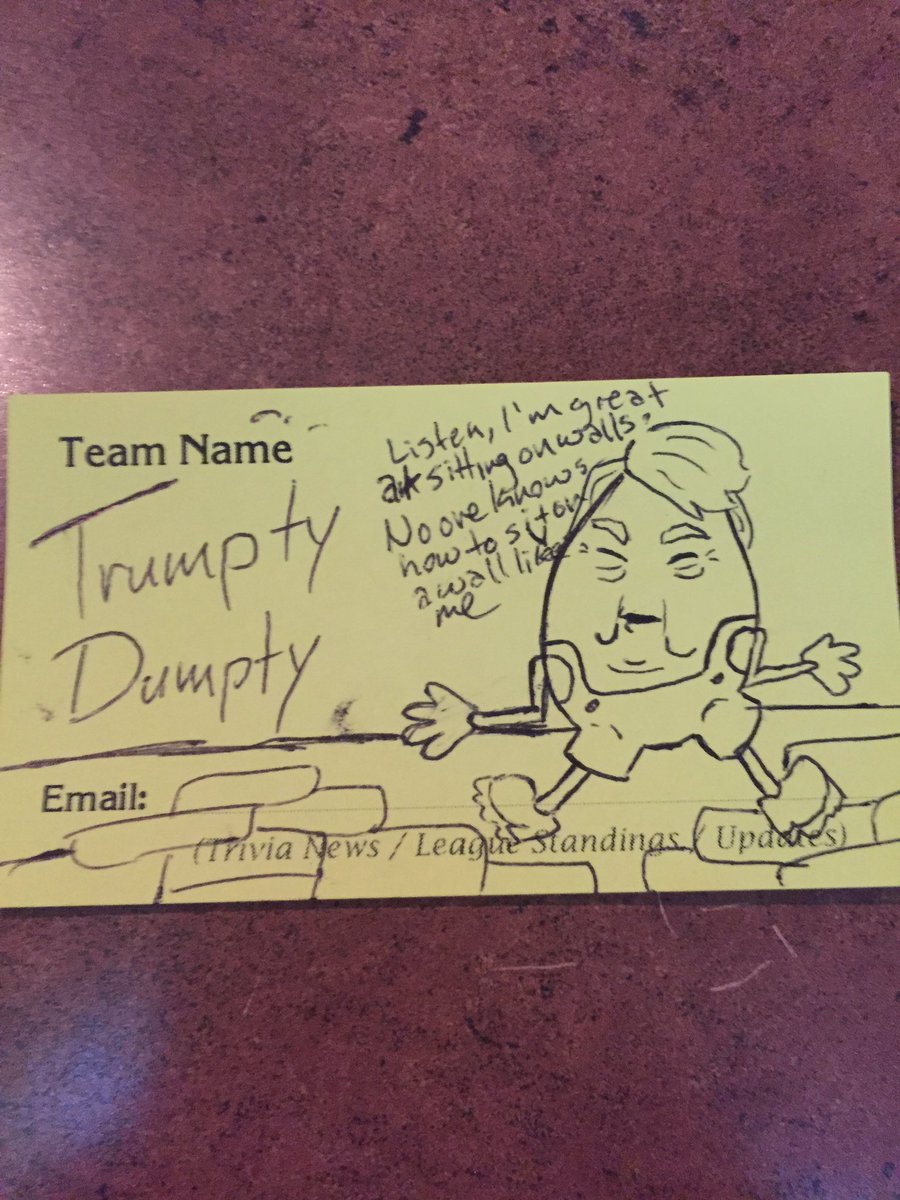 Team Name
Trumpty
Dumpty
Listen, I'm great
at sitting on walls.
No one knows
how to sit on
a wall like
me
Email:
(Trivia News / League Standings / Updates)